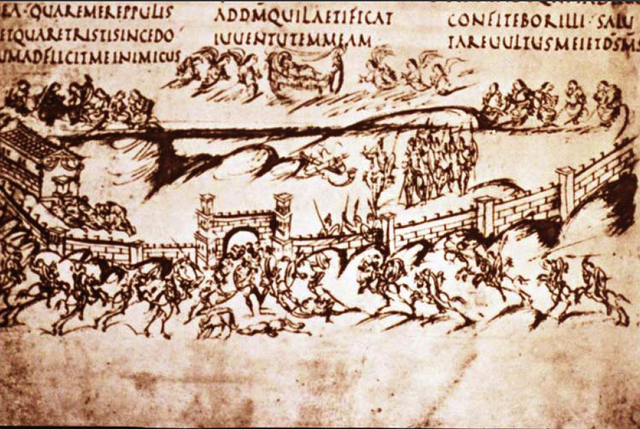 EA·QUAREMEREPPULIS
ETQUARETRISTISINCEDO
UMADFLICITMEINIMICUS
ADDMQUILAETIFICAT
IUUENTUTEMMEAM
CONFITEBORILLI·SALU
TAREUULTUSMEIETDSMS